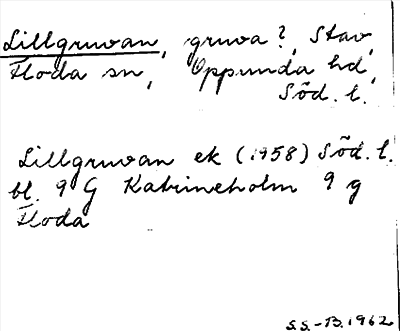 Lillgruvan, gruva?, Stav,
Floda sn, Oppunda hd,
Söd. l.
Lillgruvan ek (1958) Söd. l.
bl. 9 G Katrineholm 9 g
Floda
S.S.-B. 1962